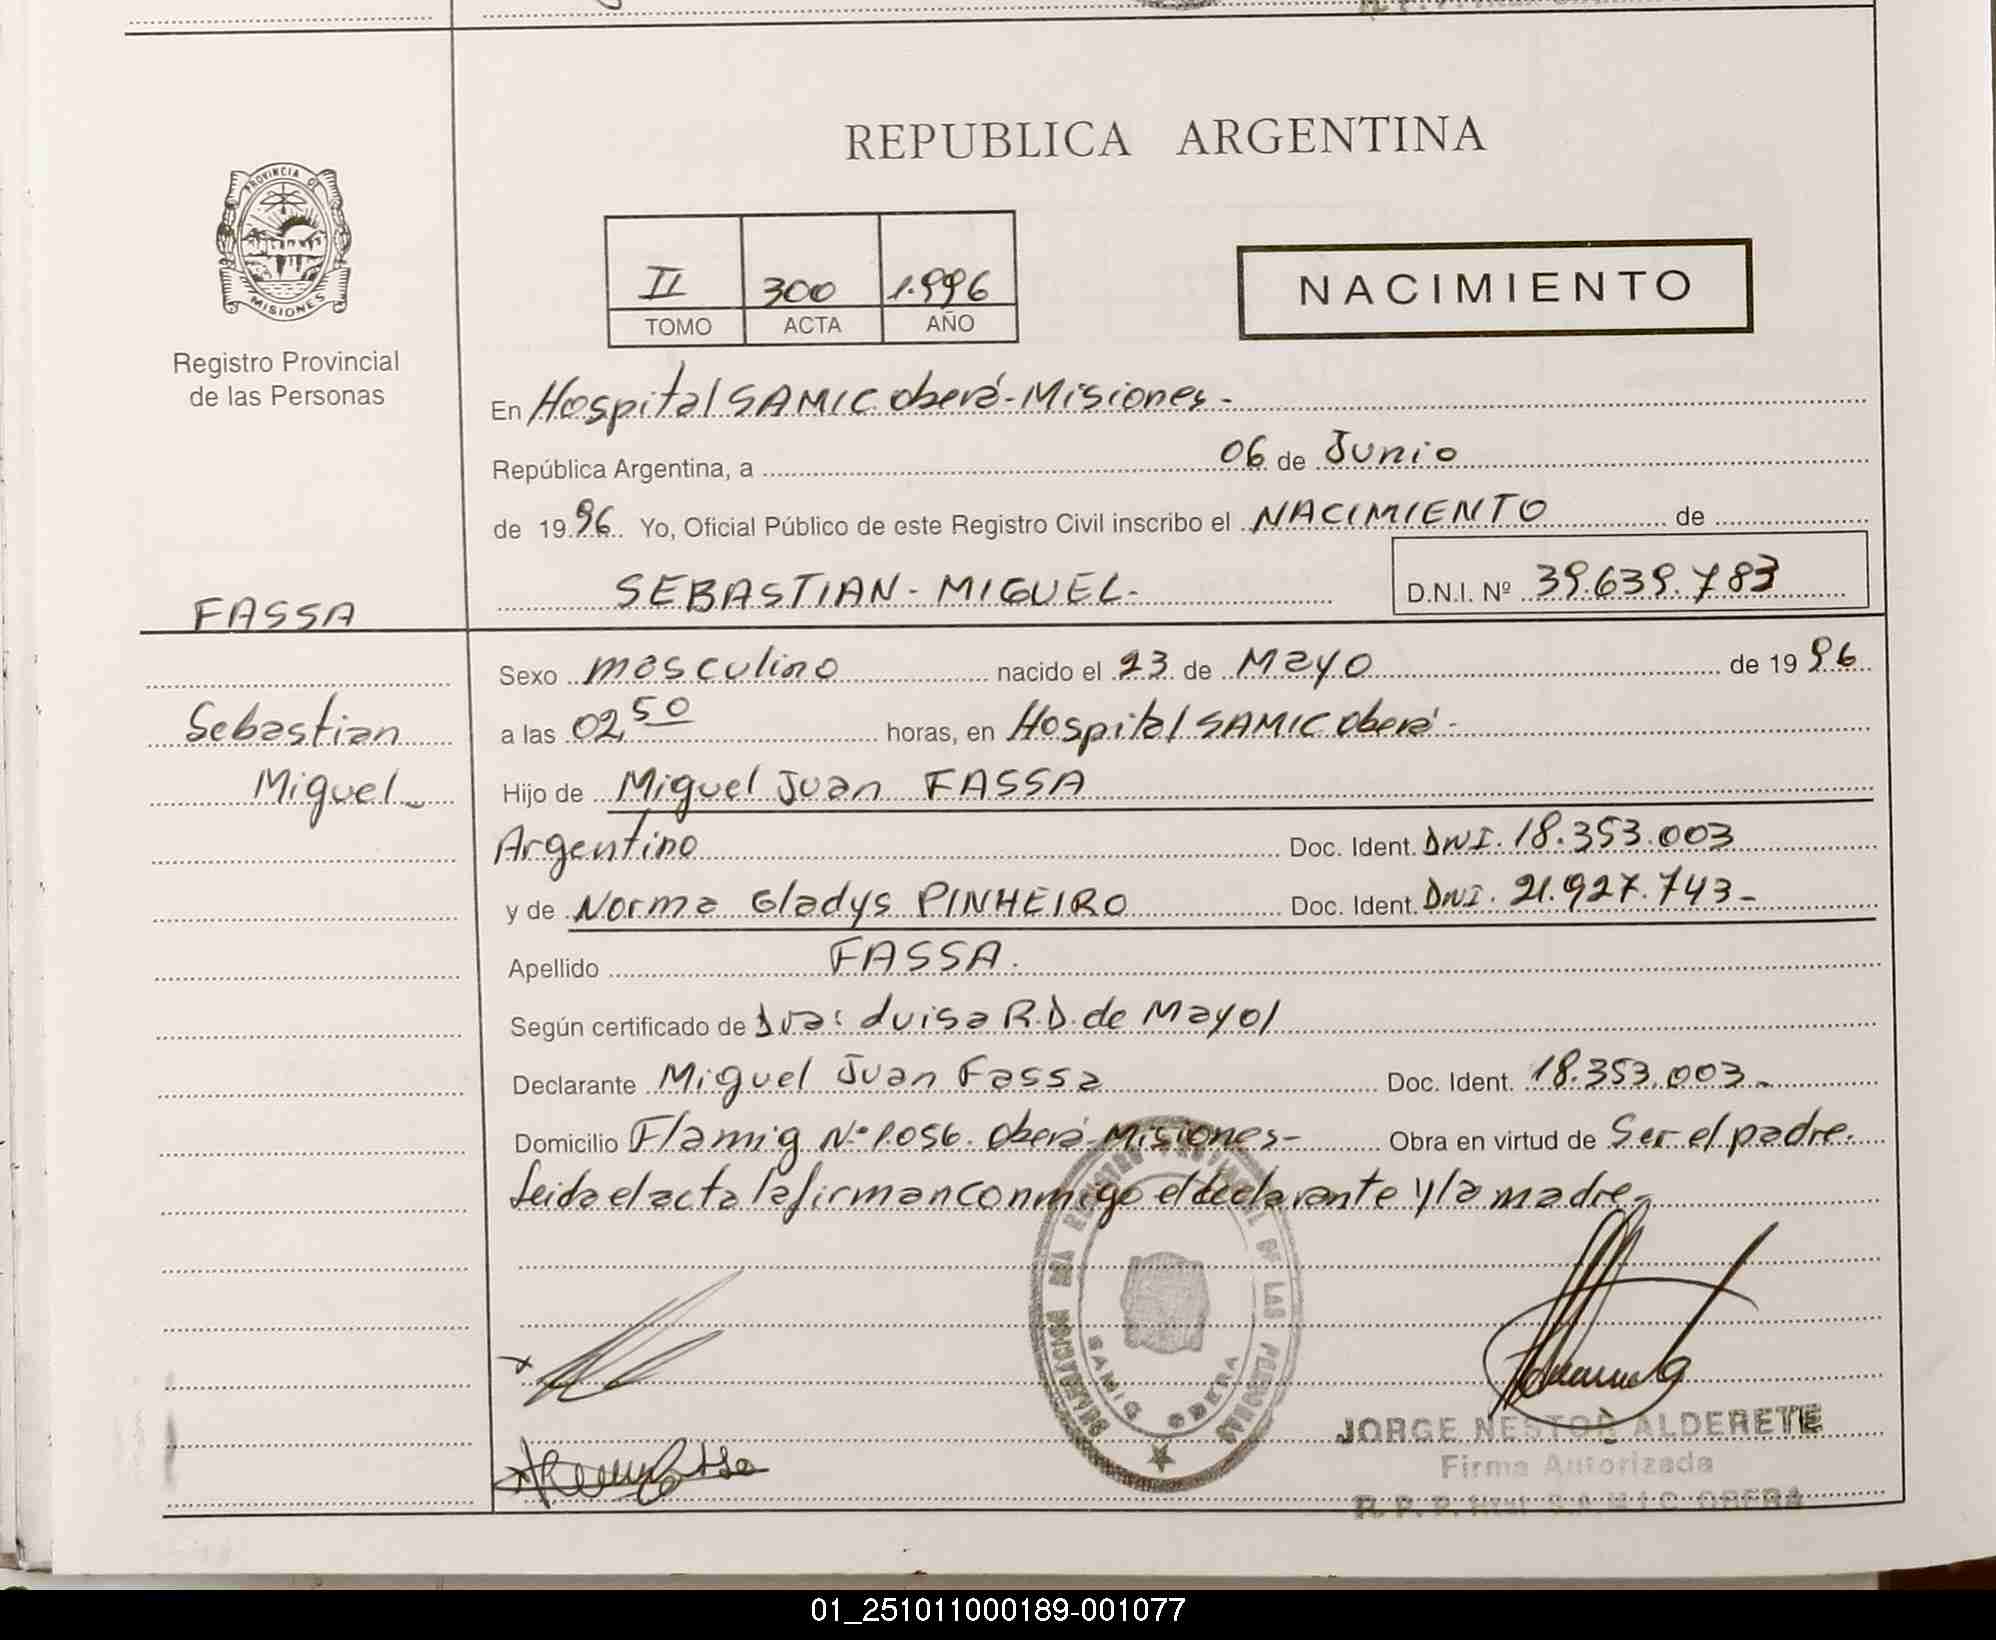 REPUBLICA ARGENTINA
PROVINCIA DE
MISIONES
Registro Provincial
de las Personas
II 300 1.996
TOMO ACTA AÑO
NACIMIENTO
En Hospital SAMIC Oberá - Misiones -
República Argentina, a 06 de Junio
de 1996 Yo, Oficial Público de este Registro Civil inscribo el NACIMIENTO de
SEBASTIAN - MIGUEL - D.N.I. Nº 39.639.783
FASSA
Sebastian
Miguel -
Sexo masculino nacido el 23 de Mayo de 1996
a las 02,50 horas, en Hospital SAMIC Oberá -
Hijo de Miguel Juan FASSA
Argentino Doc. Ident. DNI. 18.353.003
y de Norma Gladys PINHEIRO Doc. Ident. DNI. 21.927.743 -
Apellido FASSA.
Según certificado de Dra: Luisa R.D. de Mayol
Declarante Miguel Juan Fassa Doc. Ident. 18.353.003 -
Domicilio Flamig Nº 1.056. Oberá - Misiones - Obra en virtud de Ser el padre.
Leida el acta la firman conmigo el declarante y la madre -
REGISTRO PROVINCIAL DE LAS PERSONAS
SAMIC OBERA
JORGE NESTOR ALDERETE
Firma Autorizada
R. P. P. Htal S.A.M.I.C. OBERA
01_251011000189-001077